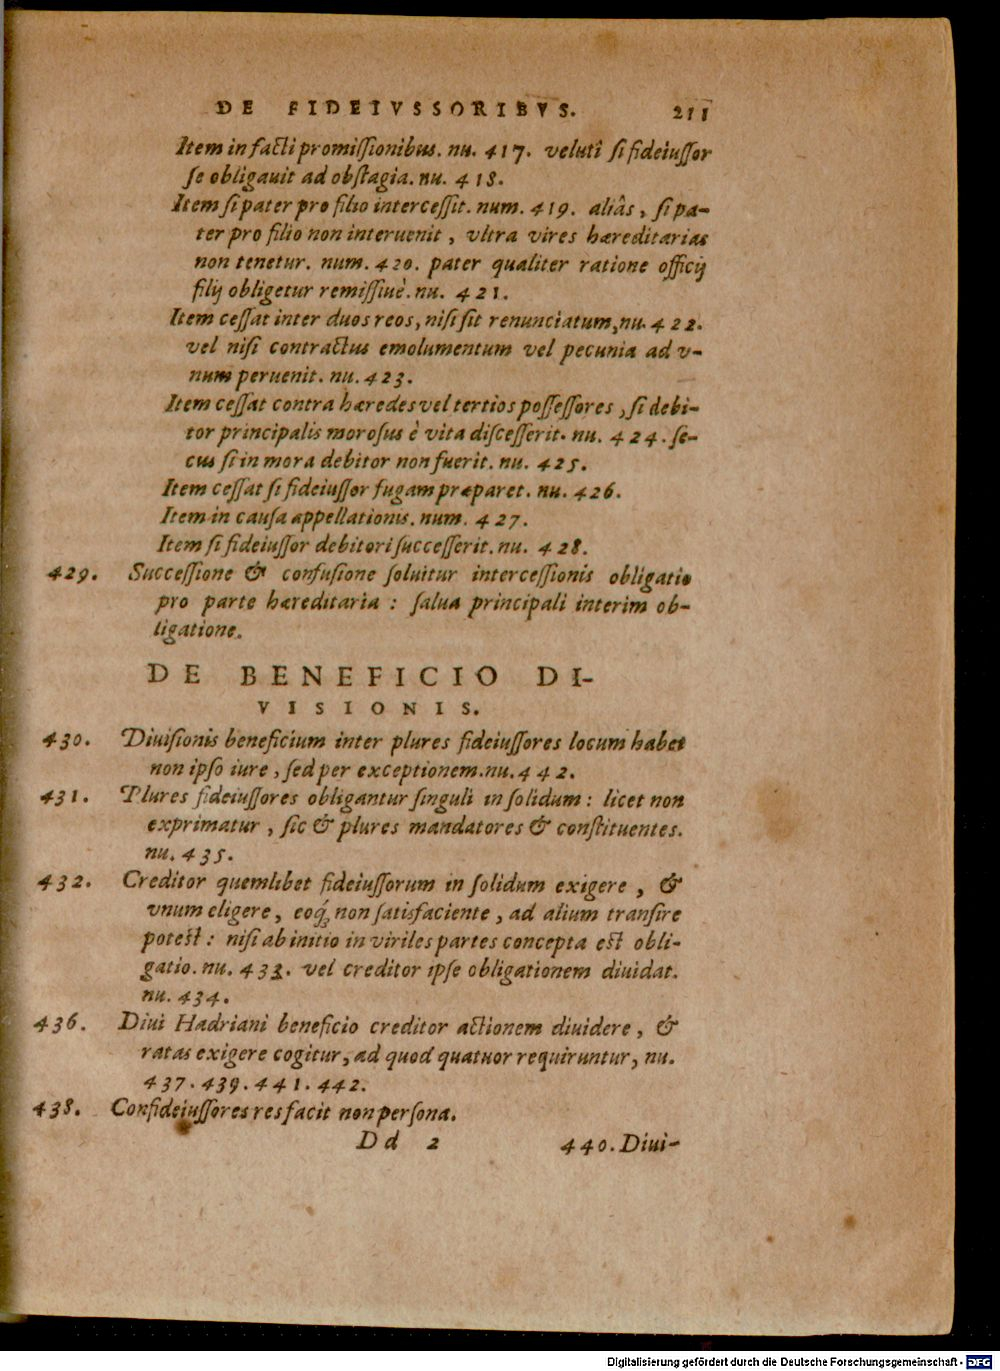 DE FIDEIVSSORIBVS. 211
Item in facti promiſſionibus. nu. 417. veluti ſi fideiuſſor
ſe obligauit ad obſtagia. nu. 418.
Item ſi pater pro filio interceſſit. num. 419. aliâs, ſi pa-
ter pro filio non interuenit, vltra vires hæreditarias
non tenetur. num. 420. pater qualiter ratione officij
filij obligetur remiſſiuè. nu. 421.
Item ceſſat inter duos reos, niſi ſit renunciatum, nu. 422.
vel niſi contractus emolumentum vel pecunia ad v-
num peruenit. nu. 423.
Item ceſſat contra hæredes vel tertios poſſeſſores, ſi debi-
tor principalis moroſus è vita diſceſſerit. nu. 424. ſe-
cus ſi in mora debitor non fuerit. nu. 425.
Item ceſſat ſi fideiuſſor fugam præparet. nu. 426.
Item in cauſa appellationis. num. 427.
Item ſi fideiuſſor debitori ſucceſſerit. nu. 428.
429. Succeſſione & confuſione ſoluitur interceſſionis obligatio
pro parte hæreditaria : ſalua principali interim ob-
ligatione.
DE BENEFICIO DI-
VISIONIS.
430. Diuiſionis beneficium inter plures fideiuſſores locum habet
non ipſo iure, ſed per exceptionem. nu. 442.
431. Plures fideiuſſores obligantur ſinguli in ſolidum : licet non
exprimatur, ſic & plures mandatores & conſtituentes.
nu. 435.
432. Creditor quemlibet fideiuſſorum in ſolidum exigere, &
vnum eligere, eoq́; non ſatisfaciente, ad alium tranſire
poteſt : niſi ab initio in viriles partes concepta eſt obli-
gatio. nu. 433. vel creditor ipſe obligationem diuidat.
nu. 434.
436. Diui Hadriani beneficio creditor actionem diuidere, &
ratas exigere cogitur, ad quod quatuor requiruntur, nu.
437. 439. 441. 442.
438. Confideiuſſores res facit non perſona.
Dd 2 440. Diui-
Digitalisierung gefördert durch die Deutsche Forschungsgemeinschaft - DFG